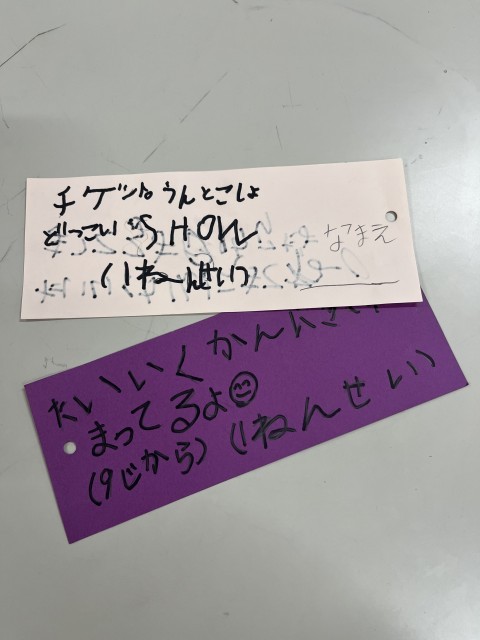 チケットうんとこしょ
どっこいSHOW
(1ねーんせい)
なまえ
たいいくかんに
まってるよ
(9じから)(1ねんせい)